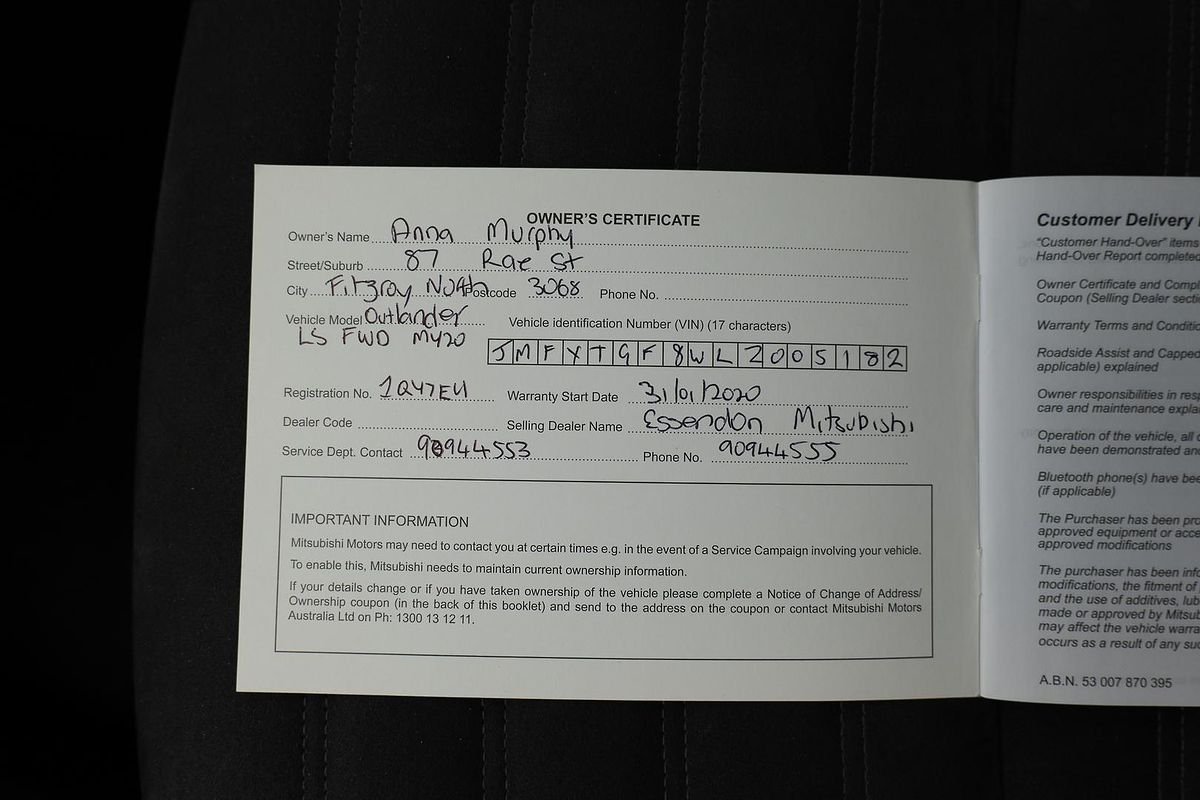 OWNER'S CERTIFICATE
Owner's Name Anna Murphy
Street/Suburb 87 Rae St
City Fitzroy North Postcode 3068 Phone No.
Vehicle Model Outlander
LS FWD MY20
Vehicle identification Number (VIN) (17 characters)
JMFXTGF8WLZ005182
Registration No. 1QY7EY Warranty Start Date 31/01/2020
Dealer Code Selling Dealer Name Essendon Mitsubishi
Service Dept. Contact 90944553 Phone No. 90944555
IMPORTANT INFORMATION
Mitsubishi Motors may need to contact you at certain times e.g. in the event of a Service Campaign involving your vehicle.
To enable this, Mitsubishi needs to maintain current ownership information.
If your details change or if you have taken ownership of the vehicle please complete a Notice of Change of Address/
Ownership coupon (in the back of this booklet) and send to the address on the coupon or contact Mitsubishi Motors
Australia Ltd on Ph: 1300 13 12 11.
Customer Delivery
"Customer Hand-Over" items
Hand-Over Report completed
Owner Certificate and Compl
Coupon (Selling Dealer secti
Warranty Terms and Conditio
Roadside Assist and Capped
applicable) explained
Owner responsibilities in resp
care and maintenance expla
Operation of the vehicle, all c
have been demonstrated and
Bluetooth phone(s) have bee
(if applicable)
The Purchaser has been pro
approved equipment or acce
approved modifications
The purchaser has been info
modifications, the fitment of
and the use of additives, lub
made or approved by Mitsub
may affect the vehicle warra
occurs as a result of any suc
A.B.N. 53 007 870 395